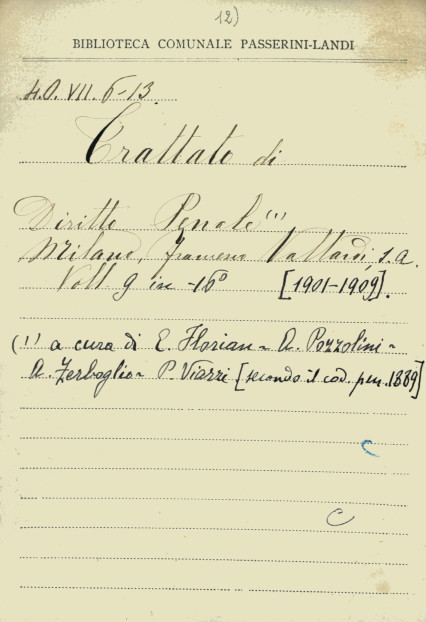 12)
BIBLIOTECA COMUNALE PASSERINI-LANDI
4.O.VII.6-13.
Trattato di
Diritto Penale (1)
Milano, Francesco Vallardi, s.a.
Voll 9 in -16° [1901-1909].
(1) a cura di E. Florian - A. Pozzolini -
A. Zerboglio - P. Viazzi [secondo il cod. pen. 1889]
C
C